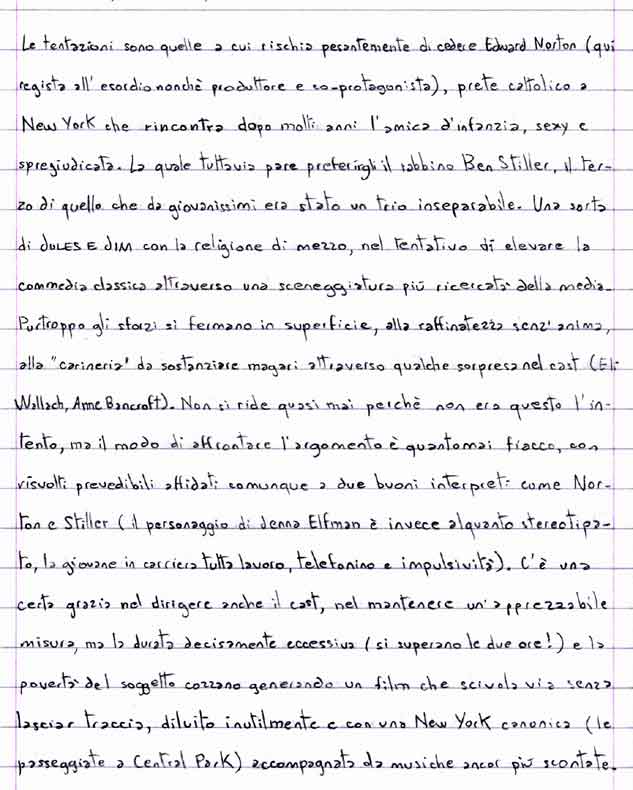 Le tentazioni sono quelle a cui rischia pesantemente di cedere Edward Norton (qui
regista all'esordio nonchè produttore e co-protagonista), prete cattolico a
New York che rincontra dopo molti anni l'amica d'infanzia, sexy e
spregiudicata. La quale tuttavia pare preferirgli il rabbino Ben Stiller, il ter-
zo di quello che da giovanissimi era stato un trio inseparabile. Una sorta
di JULES E JIM con la religione di mezzo, nel tentativo di elevare la
commedia classica attraverso una sceneggiatura più ricercata della media.
Purtroppo gli sforzi si fermano in superficie, alla raffinatezza senz'anima,
alla "carineria" da sostanziare magari attraverso qualche sorpresa nel cast (Eli
Wallach, Anne Bancroft). Non si ride quasi mai perchè non era questo l'in-
tento, ma il modo di affrontare l'argomento è quantomai fiacco, con
risvolti prevedibili affidati comunque a due buoni interpreti come Nor-
ton e Stiller (il personaggio di Jenna Elfman è invece alquanto stereotipa-
to, la giovane in carriera tutta lavoro, telefonino e impulsività). C'è una
certa grazia nel dirigere anche il cast, nel mantenere un'apprezzabile
misura, ma la durata decisamente eccessiva (si superano le due ore!) e la
povertà del soggetto cozzano generando un film che scivola via senza
lasciar traccia, diluito inutilmente e con una New York canonica (le
passeggiate a Central Park) accompagnata da musiche ancor più scontate.